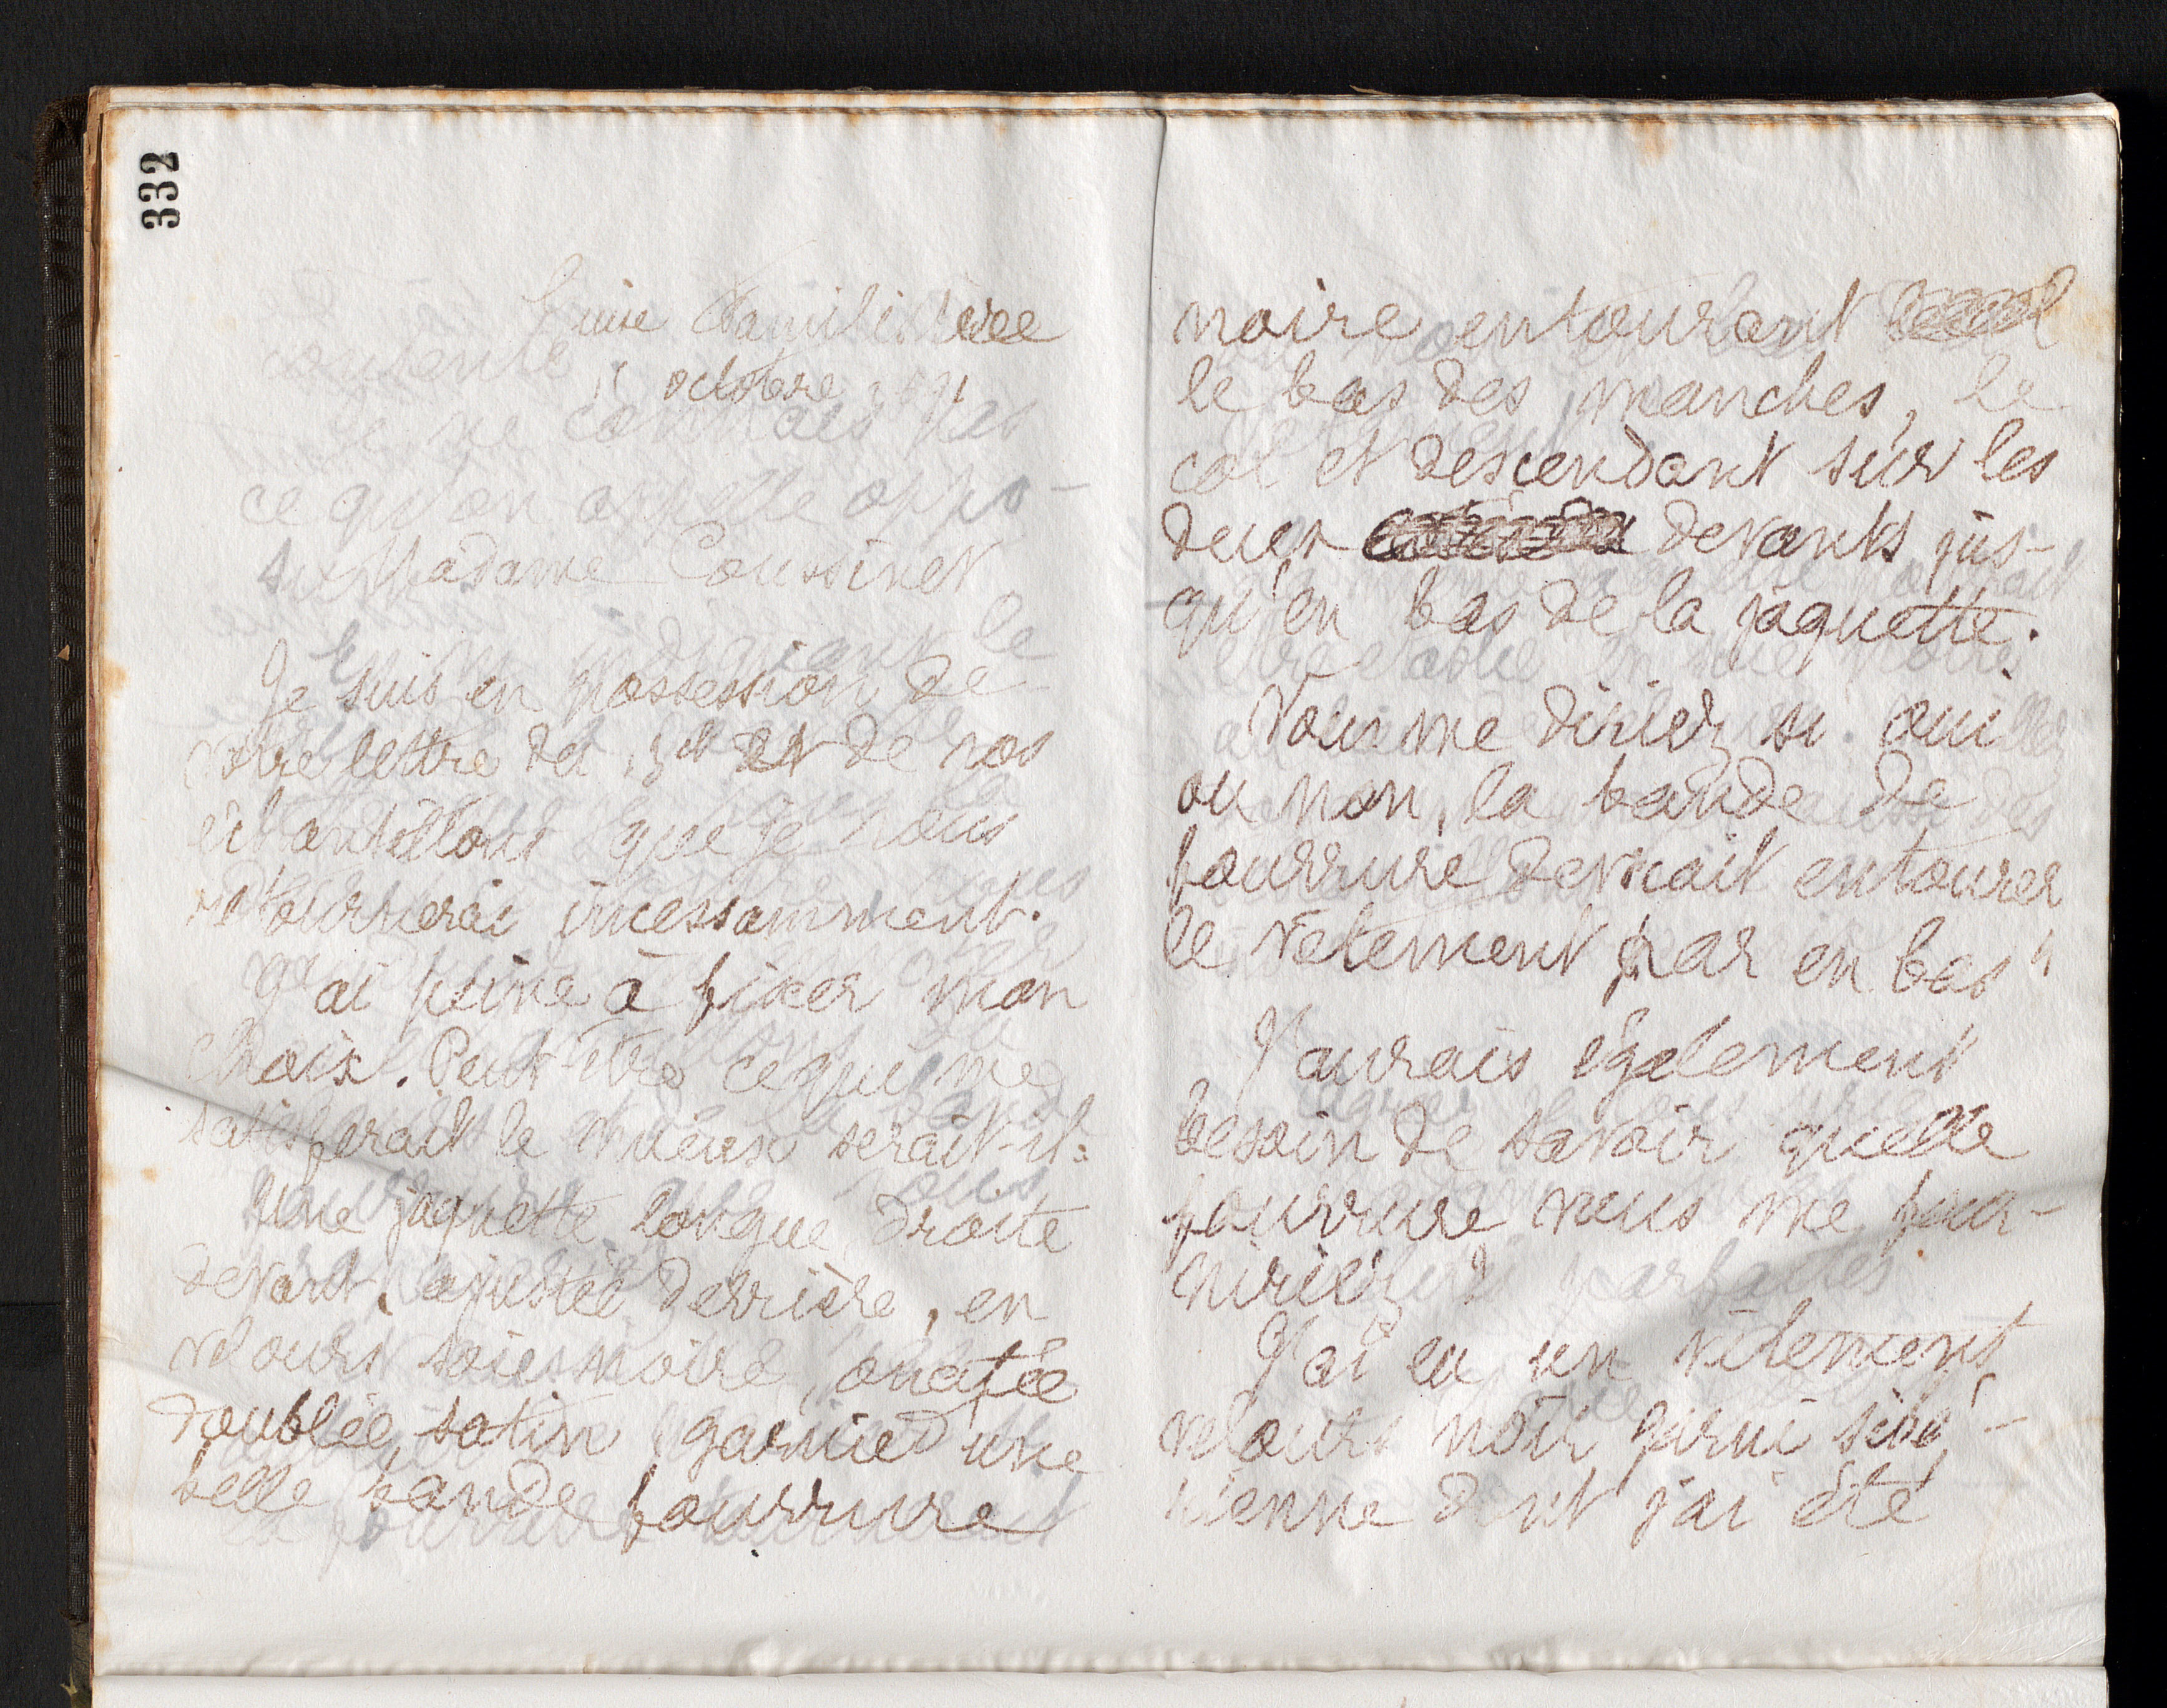 332
Guise Familistère
octobre
Madame Cousinet
Je suis en possession de
votre lettre du et de vos
échantillons que je vous
retournerai incessamment.
J'ai peine à fixer mon
choix. Peut-être ce qui me
satisferait le mieux serait-il:
Une jaquette longue, droite
devant, ajustée derrière, en
velours soie noire, ouatée
doublée satin garnie d'une
belle bande fourrure
noire entourant
le bas des manches, le
col et descendant sur les
deux devants jus-
qu'en bas de la jaquette.
Vous me diriez si oui
ou non, la bande de
fourrure devrait entourer
le vêtement par en bas"
J'aurais également
besoin de savoir quelle
fourrure vous me four-
niriez
J'ai eu un vêtement
velours noir garni sibé-
rienne dont j'ai été